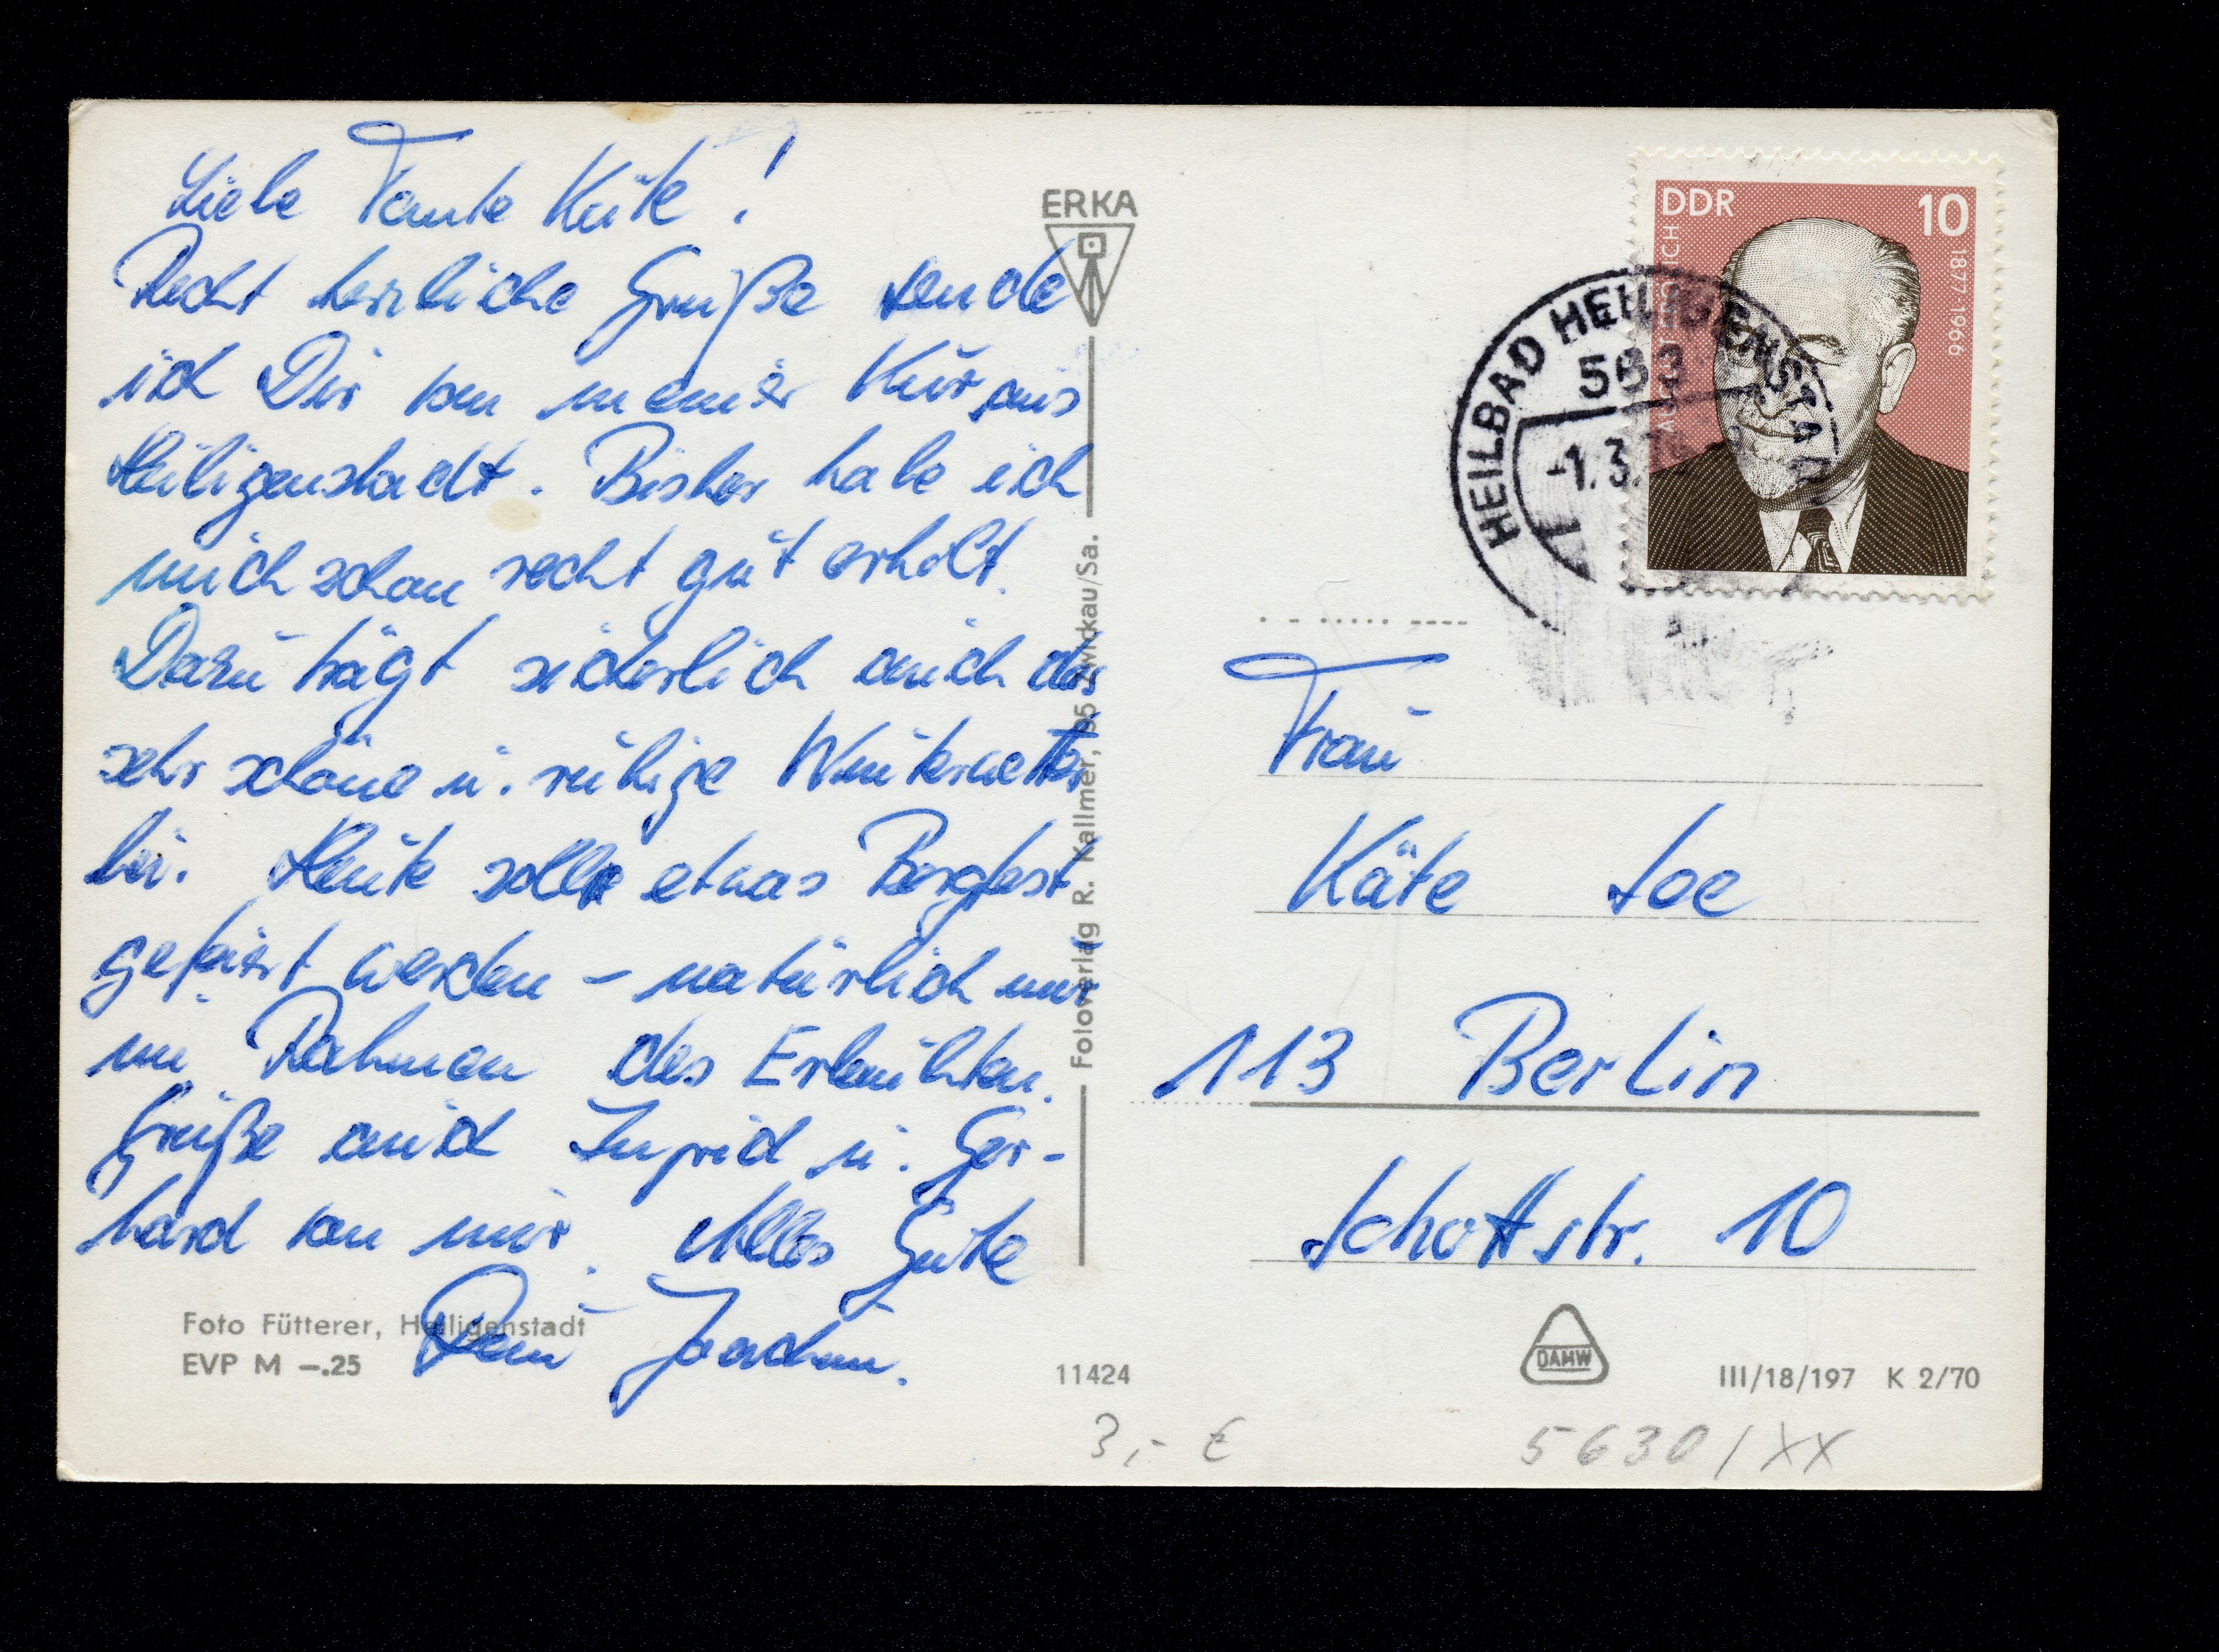 Liebe Tante Käte!
Recht herzliche Grüße sende
ich Dir von meiner Kur aus
Heiligenstadt. Bisher habe ich
mich schon recht gut erholt.
Dazu trägt sicherlich auch das
sehr schöne u. ruhige Winterwetter
bei. Heute soll etwas Bergfest
gefeiert werden – natürlich nur
im Rahmen des Erlaubten.
Grüße auch Ingrid u. Ger-
hard von mir. Alles Gute
Dein Joachim.
Foto Fütterer, Heiligenstadt
EVP M –.25
11424
ERKA
Fotoverlag R. Kallmer, 95 Zwickau/Sa.
DDR 10
1877-1966
HEILBAD HEILIGENSTADT
-1.3.
Frau
Käte
113 Berlin
Schottstr. 10
DAMW
III/18/197 K 2/70
3,- €
5630/XX